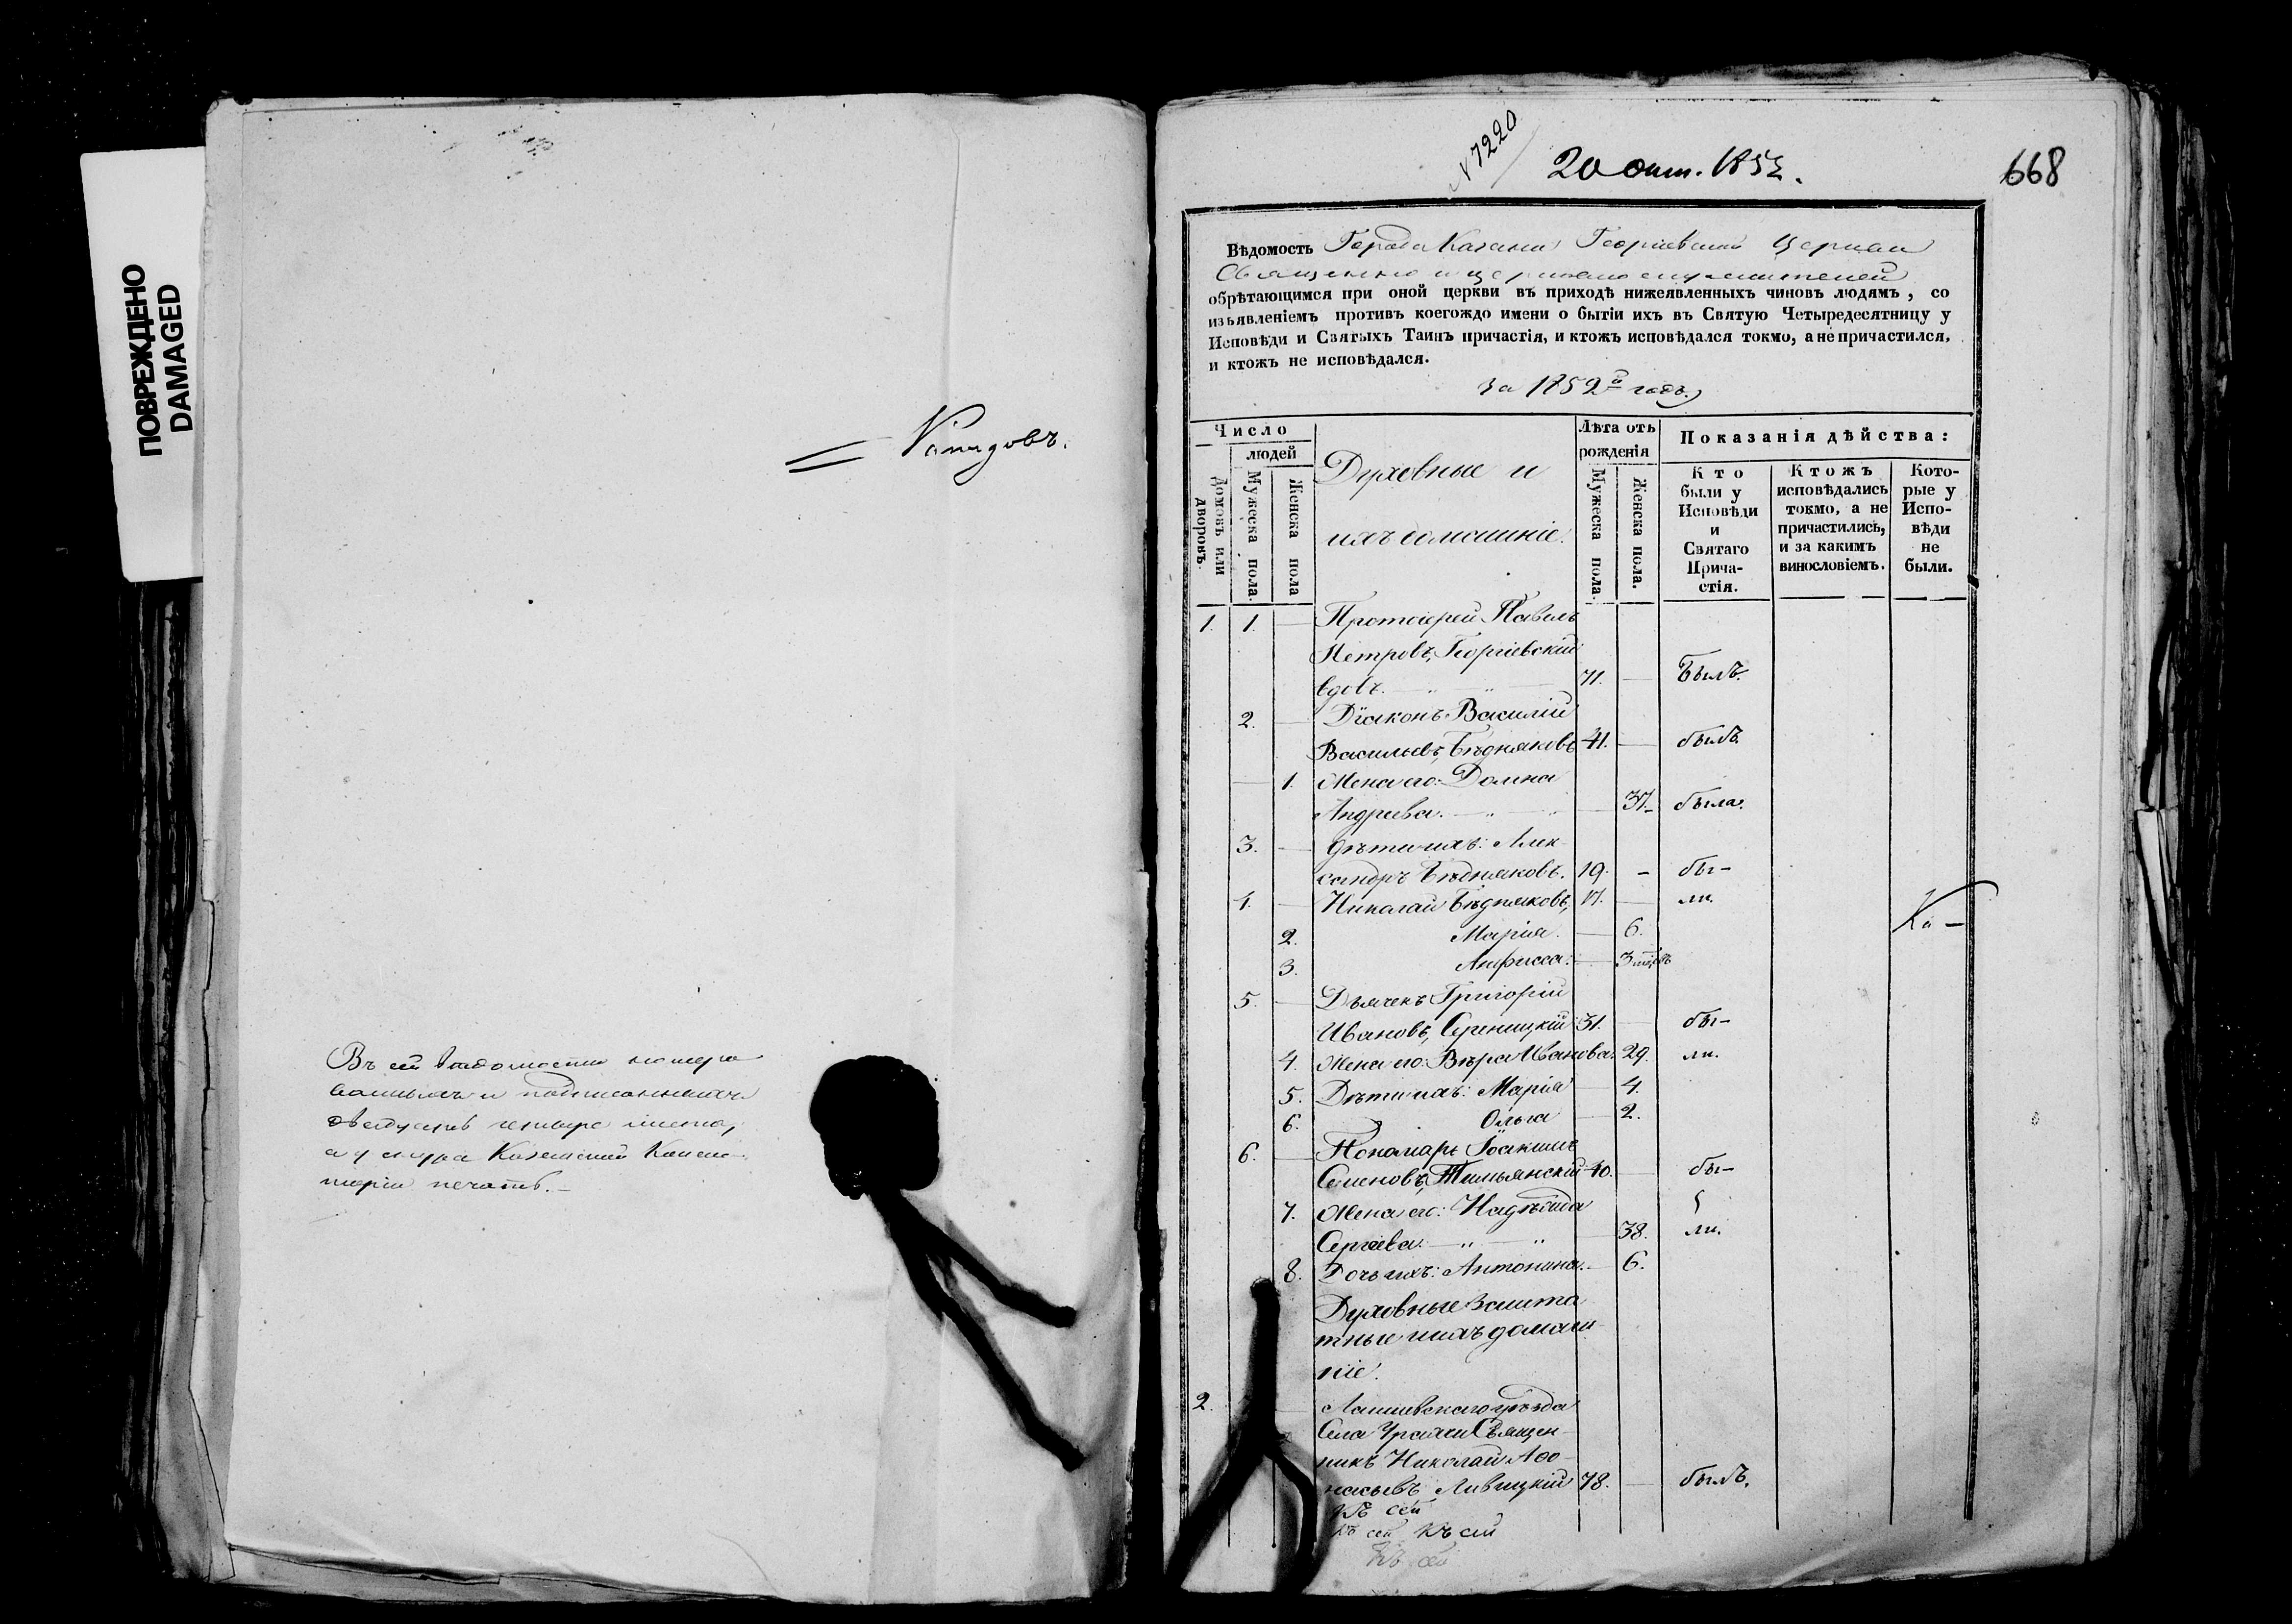 ПОВРЕЖДЕНО
DAMAGED
Въ сей вѣдомости нумеро
ванныхъ и подписанныхъ
листа,
а у шнура Казанской Консис-
торіи печать.
N 7220
20 Окт. 1852.
668
Вѣдомость Города Казани Георгіевской Церкви
Священно и церковно служителей
обрѣтающимся при оной церкви въ приходѣ нижеявленныхъ чиновъ людямъ, со
изъявленіемъ противъ коегождо имени о бытіи ихъ въ Святую Четыредесятницу у
Исповѣди и Святыхъ Таинъ причастія, и ктожъ исповѣдался токмо, а не причастился,
и ктожъ не исповѣдался.
за 1852й годъ.
Число
людей
Домовъ или дворовъ.
Мужеска пола.
Женска пола
Духовные и
ихъ домашніе.
Лѣта отъ
рожденія
Мужеска пола.
Женска пола.
Показанія дѣйства:
Кто
были у
Исповѣди
и
Святаго
Прича-
стія.
Ктожъ
исповѣдались
токмо, а не
причастились,
и за какимъ
винословіемъ.
Кото-
рые у
Испо-
вѣди
не
были.
1. 1. — Протоіерей Павелъ
Петровъ, Георгіевскій
вдовъ. 71. — Былъ.
2. — Діаконъ Василій
Васильевъ, Бѣдняковъ 41. — былъ.
— 1. Жена его: Домна
Андреева. — 37. была.
3. — дѣти ихъ: Алек-
сандръ Бѣдняковъ. 19. — бы-
4. — Николай Бѣдняковъ, 17. — ли.
2. Марія. — 6.
Ка-
3. Анфисса. — 3 мѣсяцъ
5. — Дьячекъ Григорій
Ивановъ, 31. — бы-
4. Жена его: Вѣра Иванова. 29. ли.
5. Дѣти ихъ: Марія — 4.
6. Ольга — 2.
6. — Пономарь Іоакимъ
Семеновъ, 40. — бы-
7. Жена его: Надѣжда
Сергѣева. — 38. ли.
8. Дочь ихъ: Антонина. — 6.
Духовные зашта
тные и ихъ домаш-
ніе.
2. Лаишевскаго уѣзда
Села Священ-
никъ Николай Аѳо-
насьевъ Ливицкій 78. — былъ.
Къ сей
Къ сей Къ сей
Къ сей